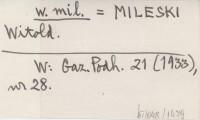 w. mil. = MILESKI
Witold.
W: Gaz. Podh. 21 (1933),
nr 28.